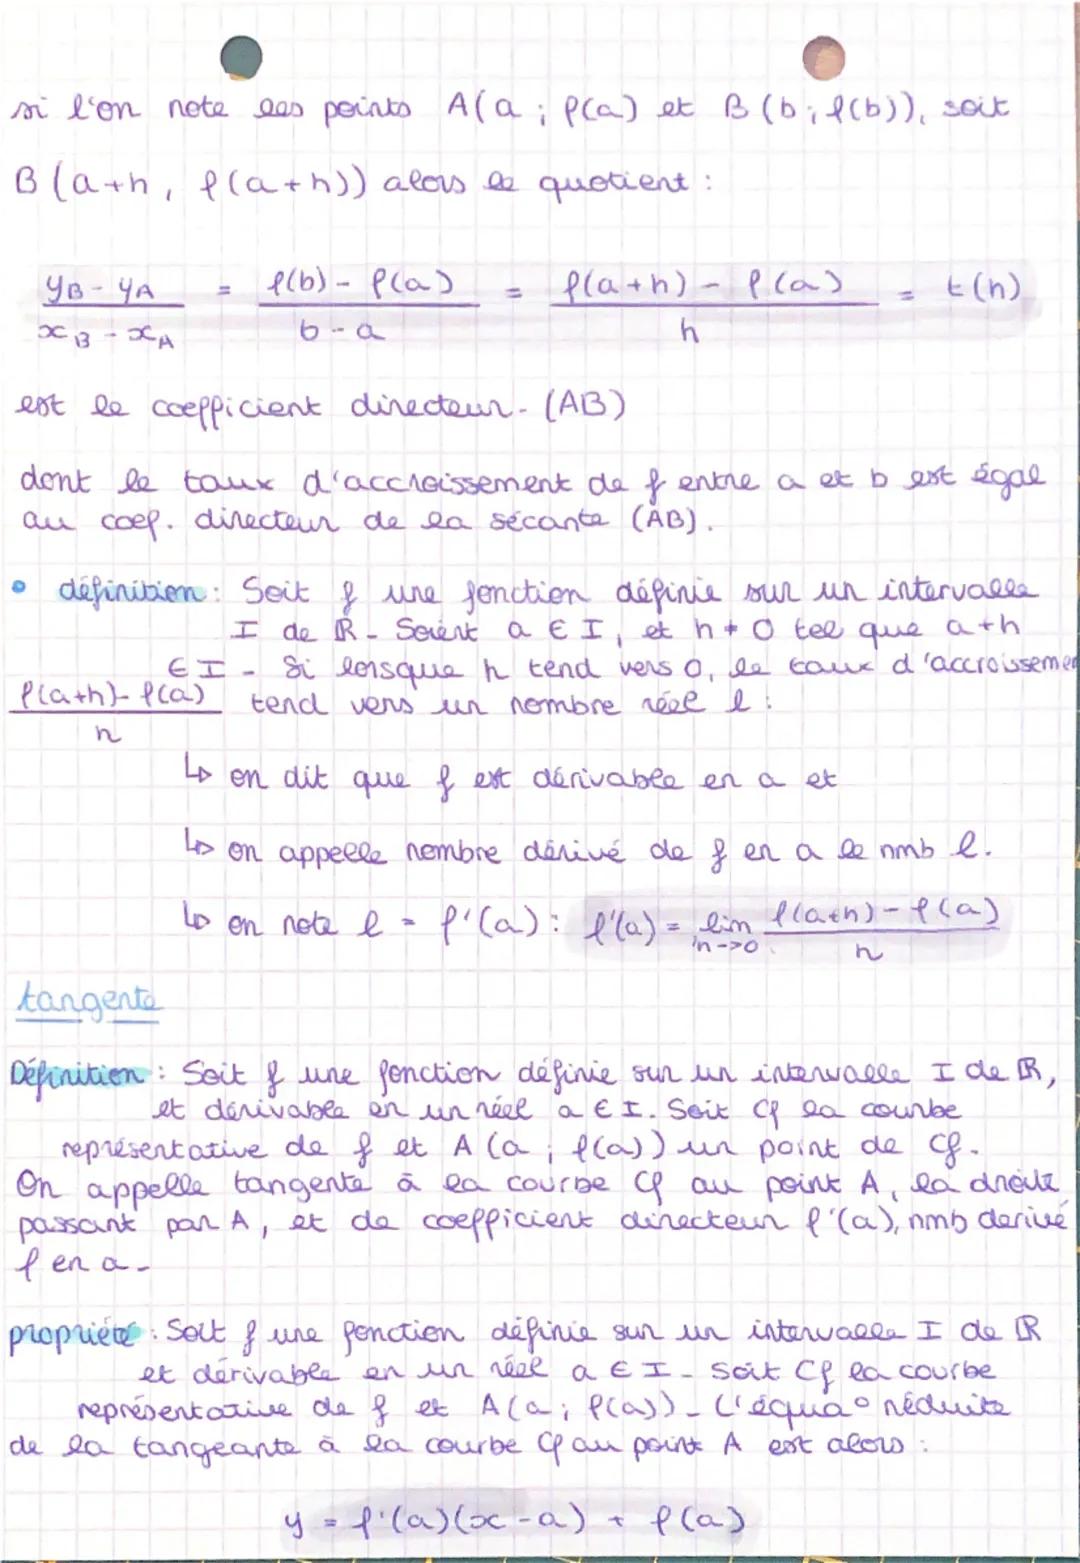 si l'on note les points A(a ; f(a) et B (b ; f(b)), soit
B (a+h, f(a+h)) alors le quotient :
yB - yA / xB - xA = f(b) - f(a) / b - a = f(a+h) - f(a) / h = t(h)
est le coefficient directeur. (AB)
dont le taux d'accroissement de f entre a et b est égal
au coef. directeur de la sécante (AB).
• définition : Soit f une fonction définie sur un intervalle
I de ℝ - Soient a ∈ I, et h ≠ 0 tel que a+h
∈ I - Si lorsque h tend vers 0, le taux d'accroissemen
f(a+h) - f(a) / h tend vers un nombre réel l :
↳ on dit que f est dérivable en a et
↳ on appelle nombre dérivé de f en a le nmb l.
↳ on note l = f'(a) : f'(a) = lim h->0 f(a+h) - f(a) / h
tangente
Définition : Soit f une fonction définie sur un intervalle I de ℝ,
et dérivable en un réel a ∈ I. Soit Cf la courbe
représentative de f et A (a ; f(a)) un point de Cf.
On appelle tangente à la courbe Cf au point A, la droite
passant par A, et de coefficient directeur f'(a), nmb derivé
f en a -
propriété : Soit f une fonction définie sur un intervalle I de ℝ
et dérivable en un réel a ∈ I - Soit Cf la courbe
représentative de f et A(a ; f(a)) - L'équa° réduite
de la tangeante à la courbe Cf au point A est alors :
y = f'(a)(x - a) + f(a)